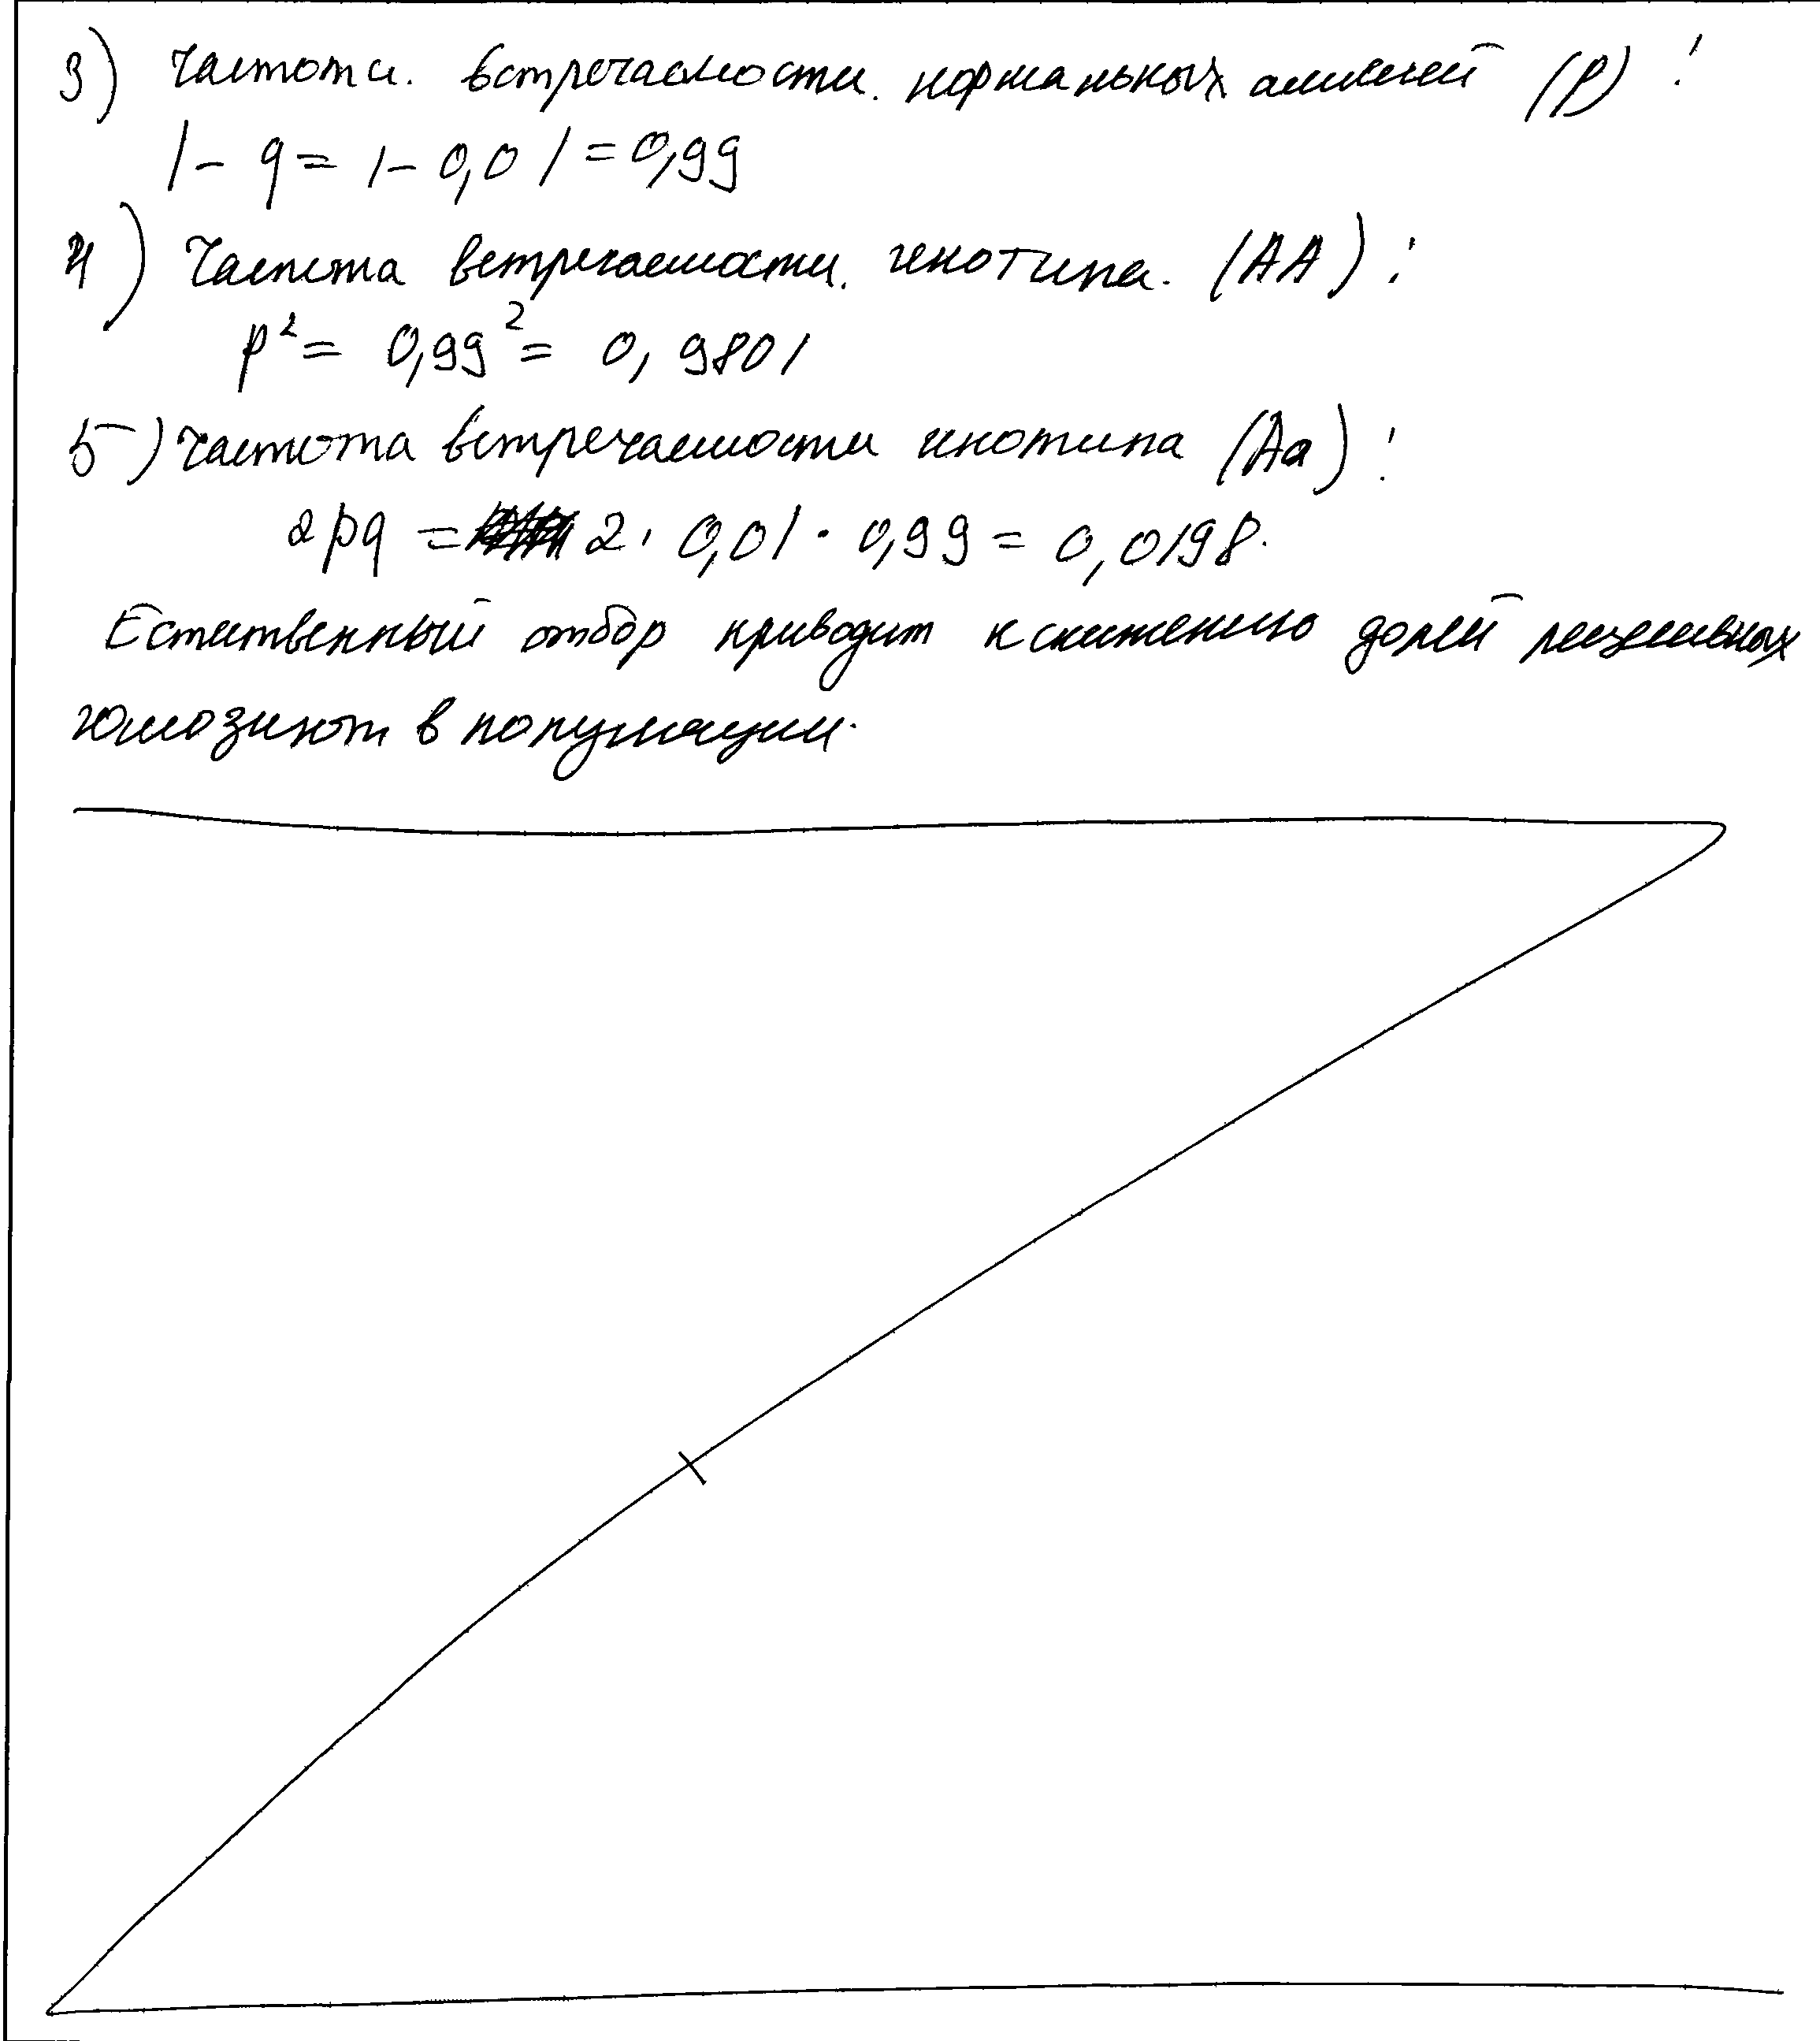 3) Частота встречаемости нормальных аллелей (p):
1 - q = 1 - 0,01 = 0,99
4) Частота встречаемости генотипа (AA):
p² = 0,99² = 0,9801
5) Частота встречаемости генотипа (Aa):
2pq = 2 · 0,01 · 0,99 = 0,0198.
Естественный отбор приводит к снижению долей рецессивных
гомозигот в популяции.